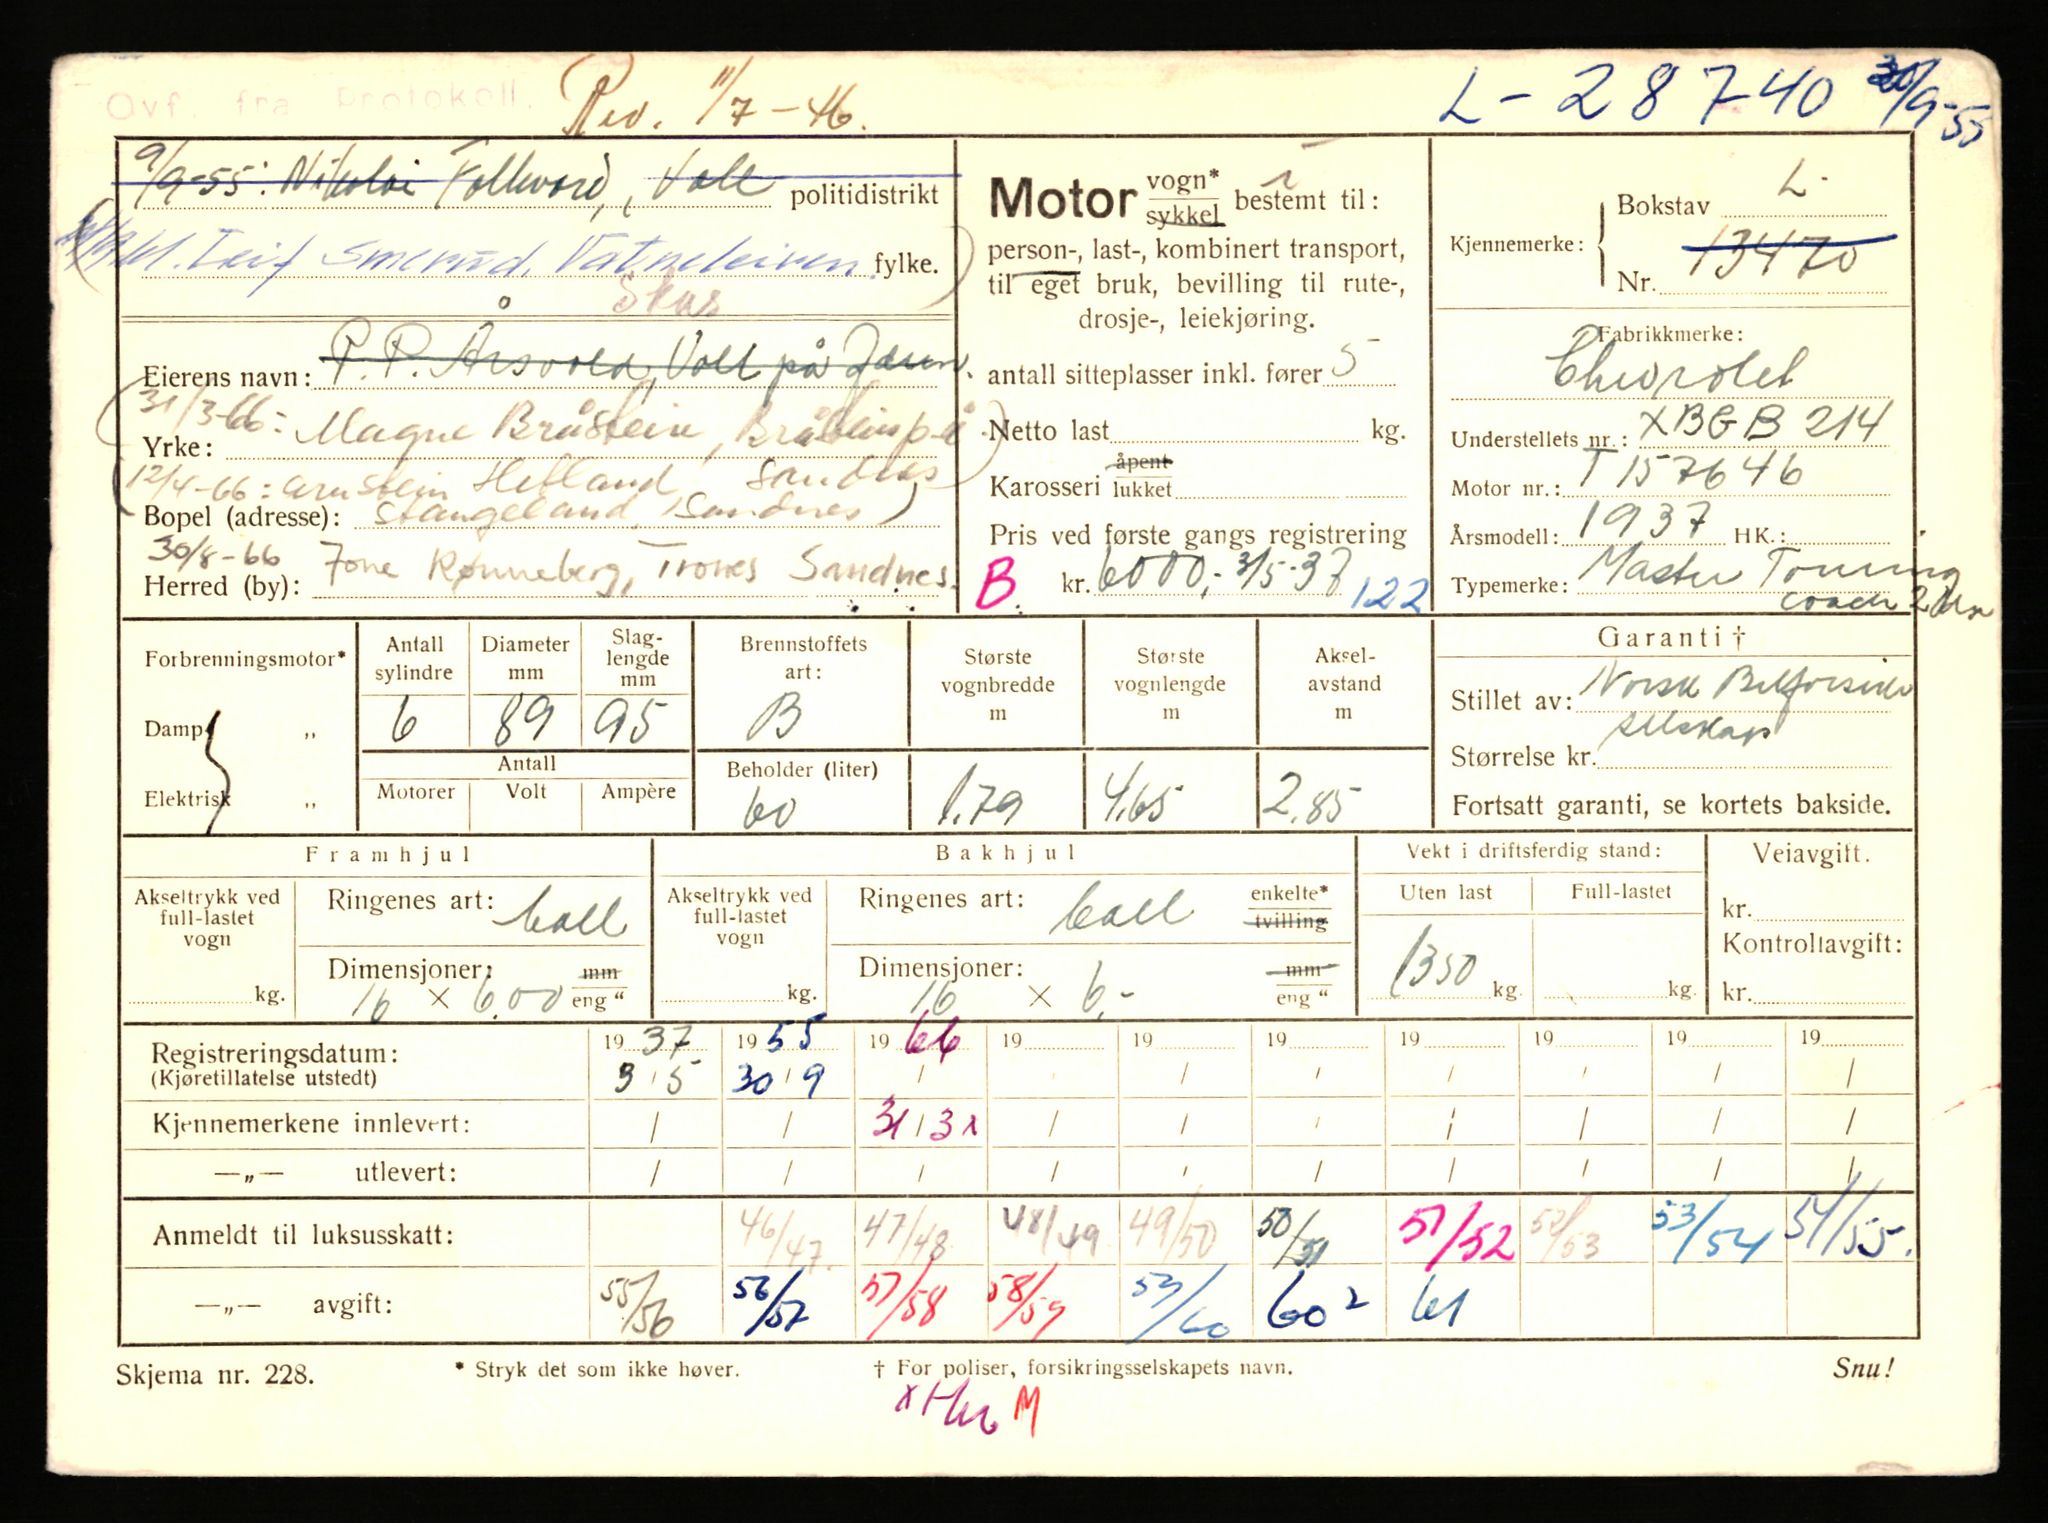 Ovf. fra Protokoll. Rev. 11/7-46. L-28740 30/9-55
9/9-55: Nikolai Folkvord, Voll politidistrikt
Leif Smerud, Vatneleiren fylke.
Skas
Eierens navn: P. P. Årsvold, Voll på Jæren.
31/3-66: Magne Bråstein, Bråstein p.å.
Yrke:
12/4-66: Arnstein Helland, Sandnes
Bopel (adresse): Stangeland, Sandnes
30/8-66 Tone Rønneberg, Trones Sandnes.
Herred (by):
Motor vogn* sykkel bestemt til:
person-, last-, kombinert transport,
til eget bruk, bevilling til rute-,
drosje-, leiekjøring.
antall sitteplasser inkl. fører 5
Netto last kg.
Karosseri åpent lukket
Pris ved første gangs registrering
B. kr. 6000,- 3/5-37 122
Kjennemerke: Bokstav L-
Nr. 13470
Fabrikkmerke:
Chevrolet
Understellets nr.: XBGB 214
Motor nr.: T157646
Årsmodell: 1937 HK.:
Typemerke: Master Touring
coach 2 dør
Forbrenningsmotor*
Damp „
Elektrisk „
Antall sylindre 6
Diameter mm 89
Slag-lengde mm 95
Antall
Motorer Volt Ampère
Brennstoffets art: B
Beholder (liter) 60
Største vognbredde m 1.79
Største vognlengde m 4,65
Aksel-avstand m 2,85
Garanti †
Stillet av: Norsk Bilforsikr
selskap
Størrelse kr.
Fortsatt garanti, se kortets bakside.
Framhjul
Akseltrykk ved full-lastet vogn kg.
Ringenes art: ball
Dimensjoner: 16 × 6,00 mm eng “
Bakhjul
Akseltrykk ved full-lastet vogn kg.
Ringenes art: ball enkelte* tvilling
Dimensjoner: 16 × 6,- mm eng “
Vekt i driftsferdig stand:
Uten last Full-lastet
1350 kg. kg.
Veiavgift.
kr.
Kontrollavgift:
kr.
Registreringsdatum: 1937 1955 1966 19 19 19 19 19 19 19
(Kjøretillatelse utstedt) 3/5 30/9 / / / / / / /
Kjennemerkene innlevert: / / 31/3 x / / / / / / /
—„— utlevert: / / / / / / / / / /
Anmeldt til luksusskatt: 46/47. 47/48 48/49 49/50 50/51 51/52 52/53 53/54 54/55.
—„— avgift: 55/56 56/57 57/58 58/59 59/60 60² 61
Skjema nr. 228. * Stryk det som ikke høver. † For poliser, forsikringsselskapets navn. Snu!
M